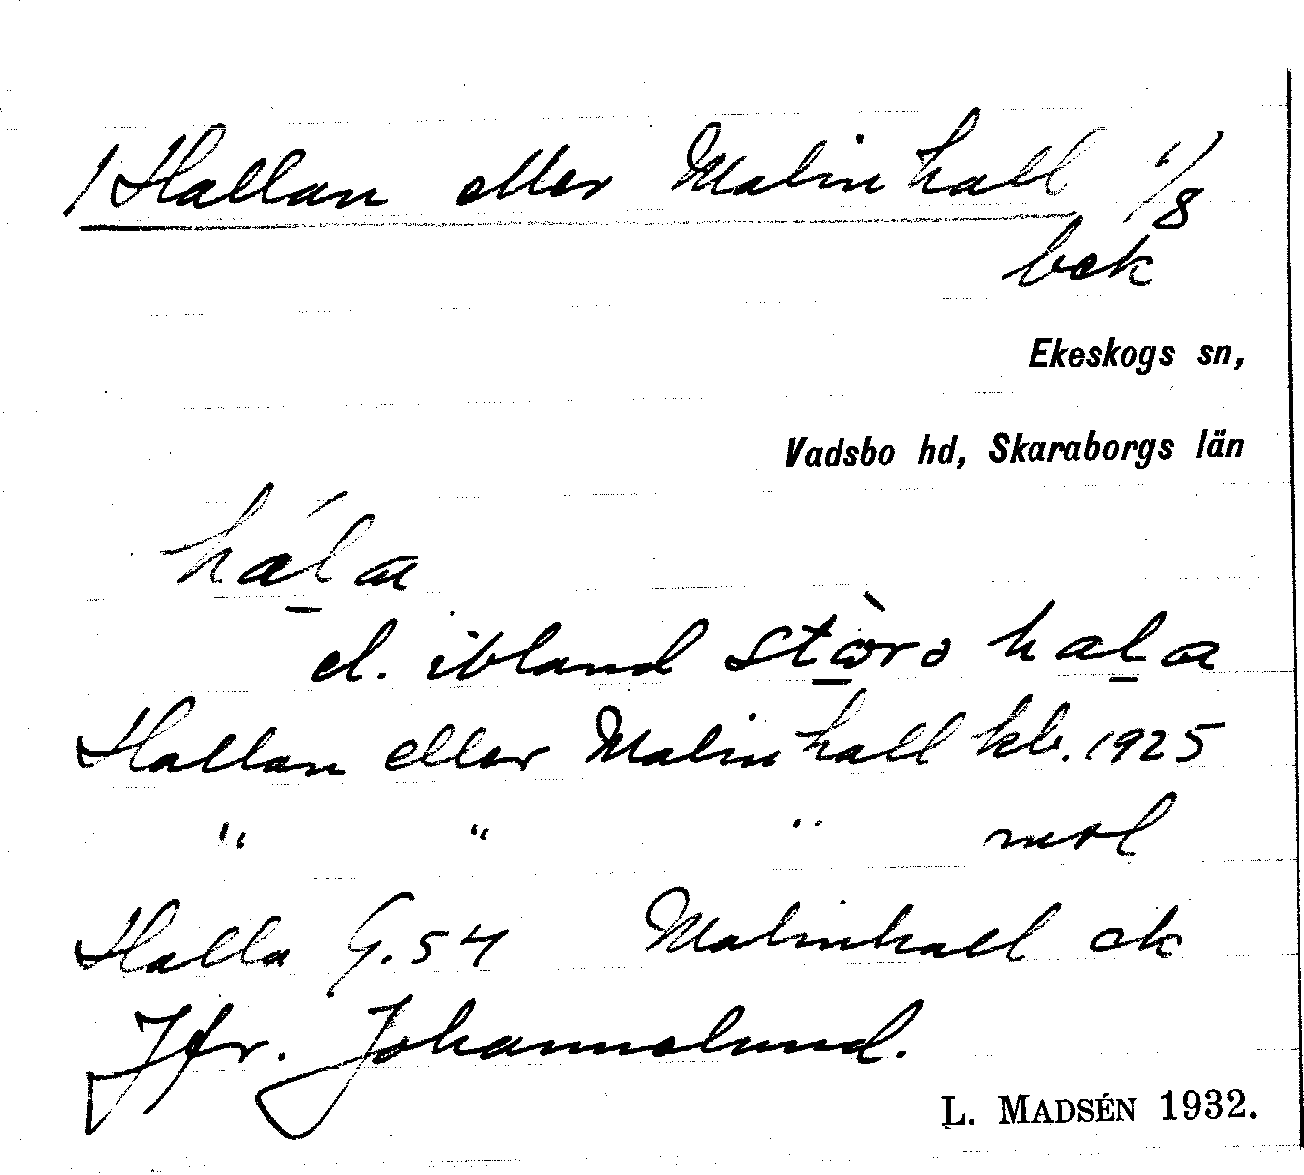 1 Hallan eller Malinhall 1/8
bek
Ekeskogs sn,
Vadsbo hd, Skaraborgs län
hála
el. ibland stòro hala
Hallan eller Malinhall kb. 1925
" " "
Halla G. 54 Malinhall ek
Jfr. Johanneslund.
L. MADSÉN 1932.